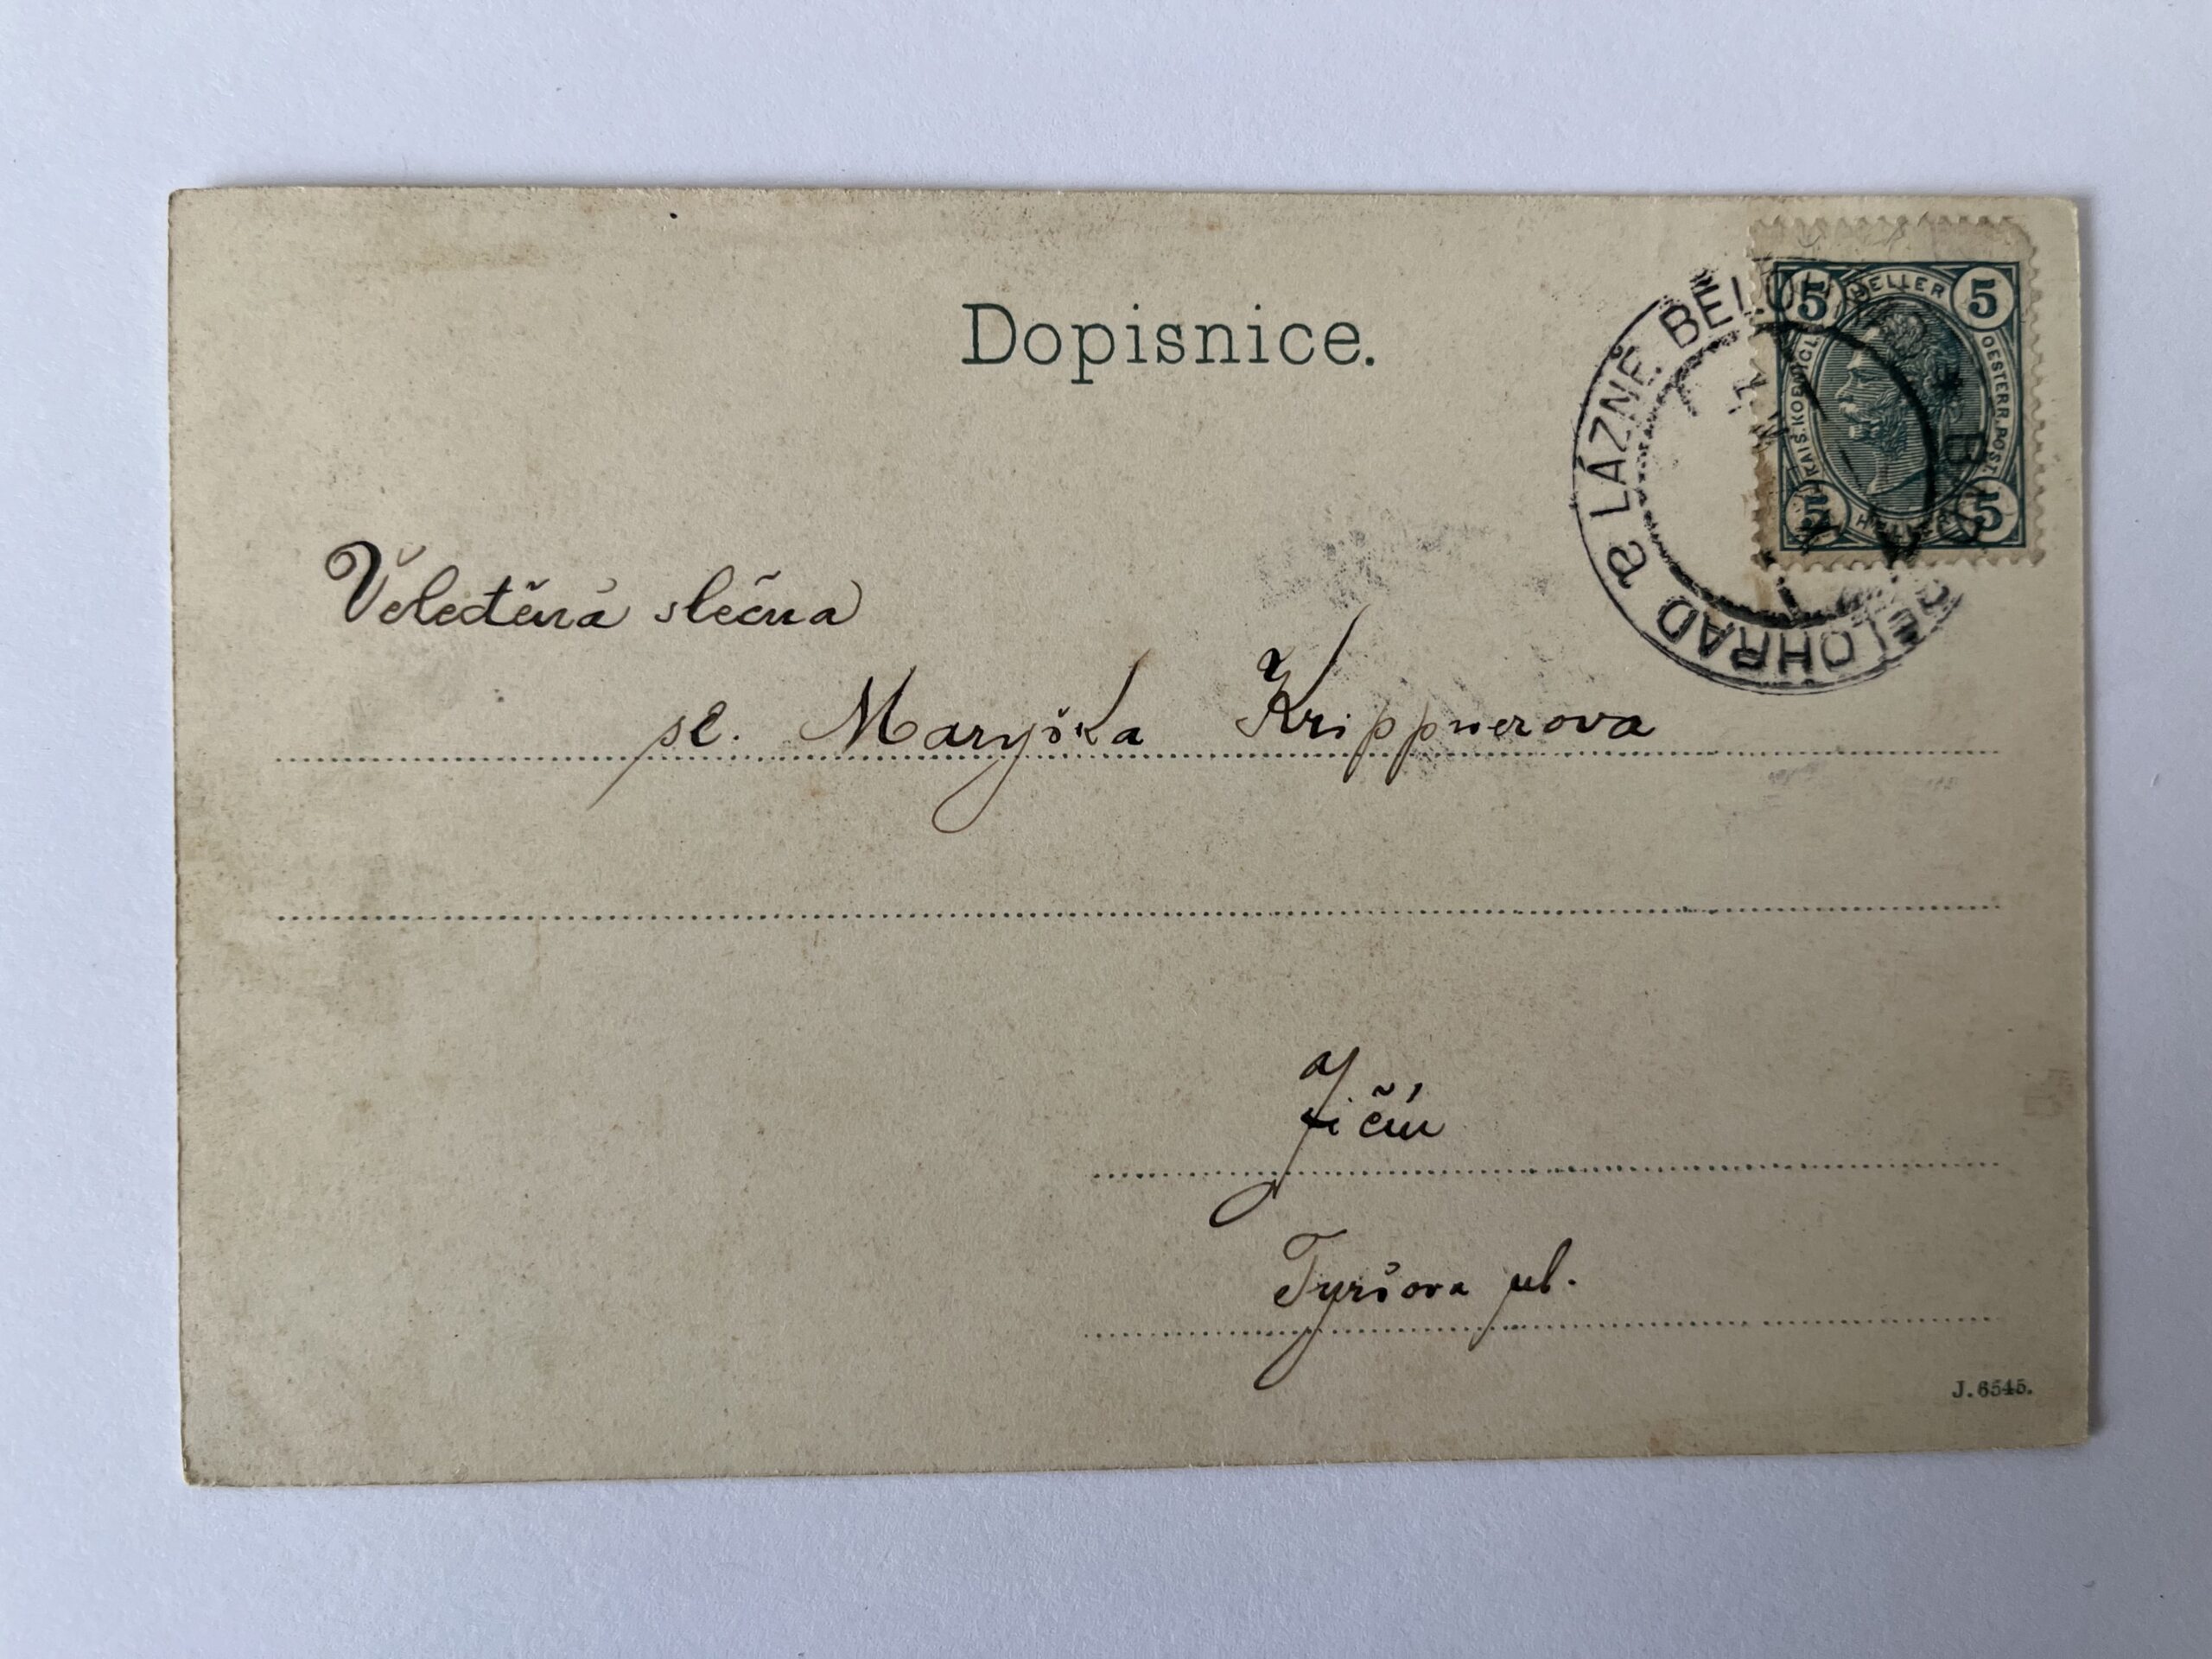 Dopisnice.
LÁZNĚ BĚLOHRAD
BELOHRAD
5 HELLER 5
KAIS. KOENIGL. OESTERR. POST.
5 HELLER 5
Veležtěná slečna
sl. Maryška Krippnerova
Jičín
Tyršova ul.
J. 6545.